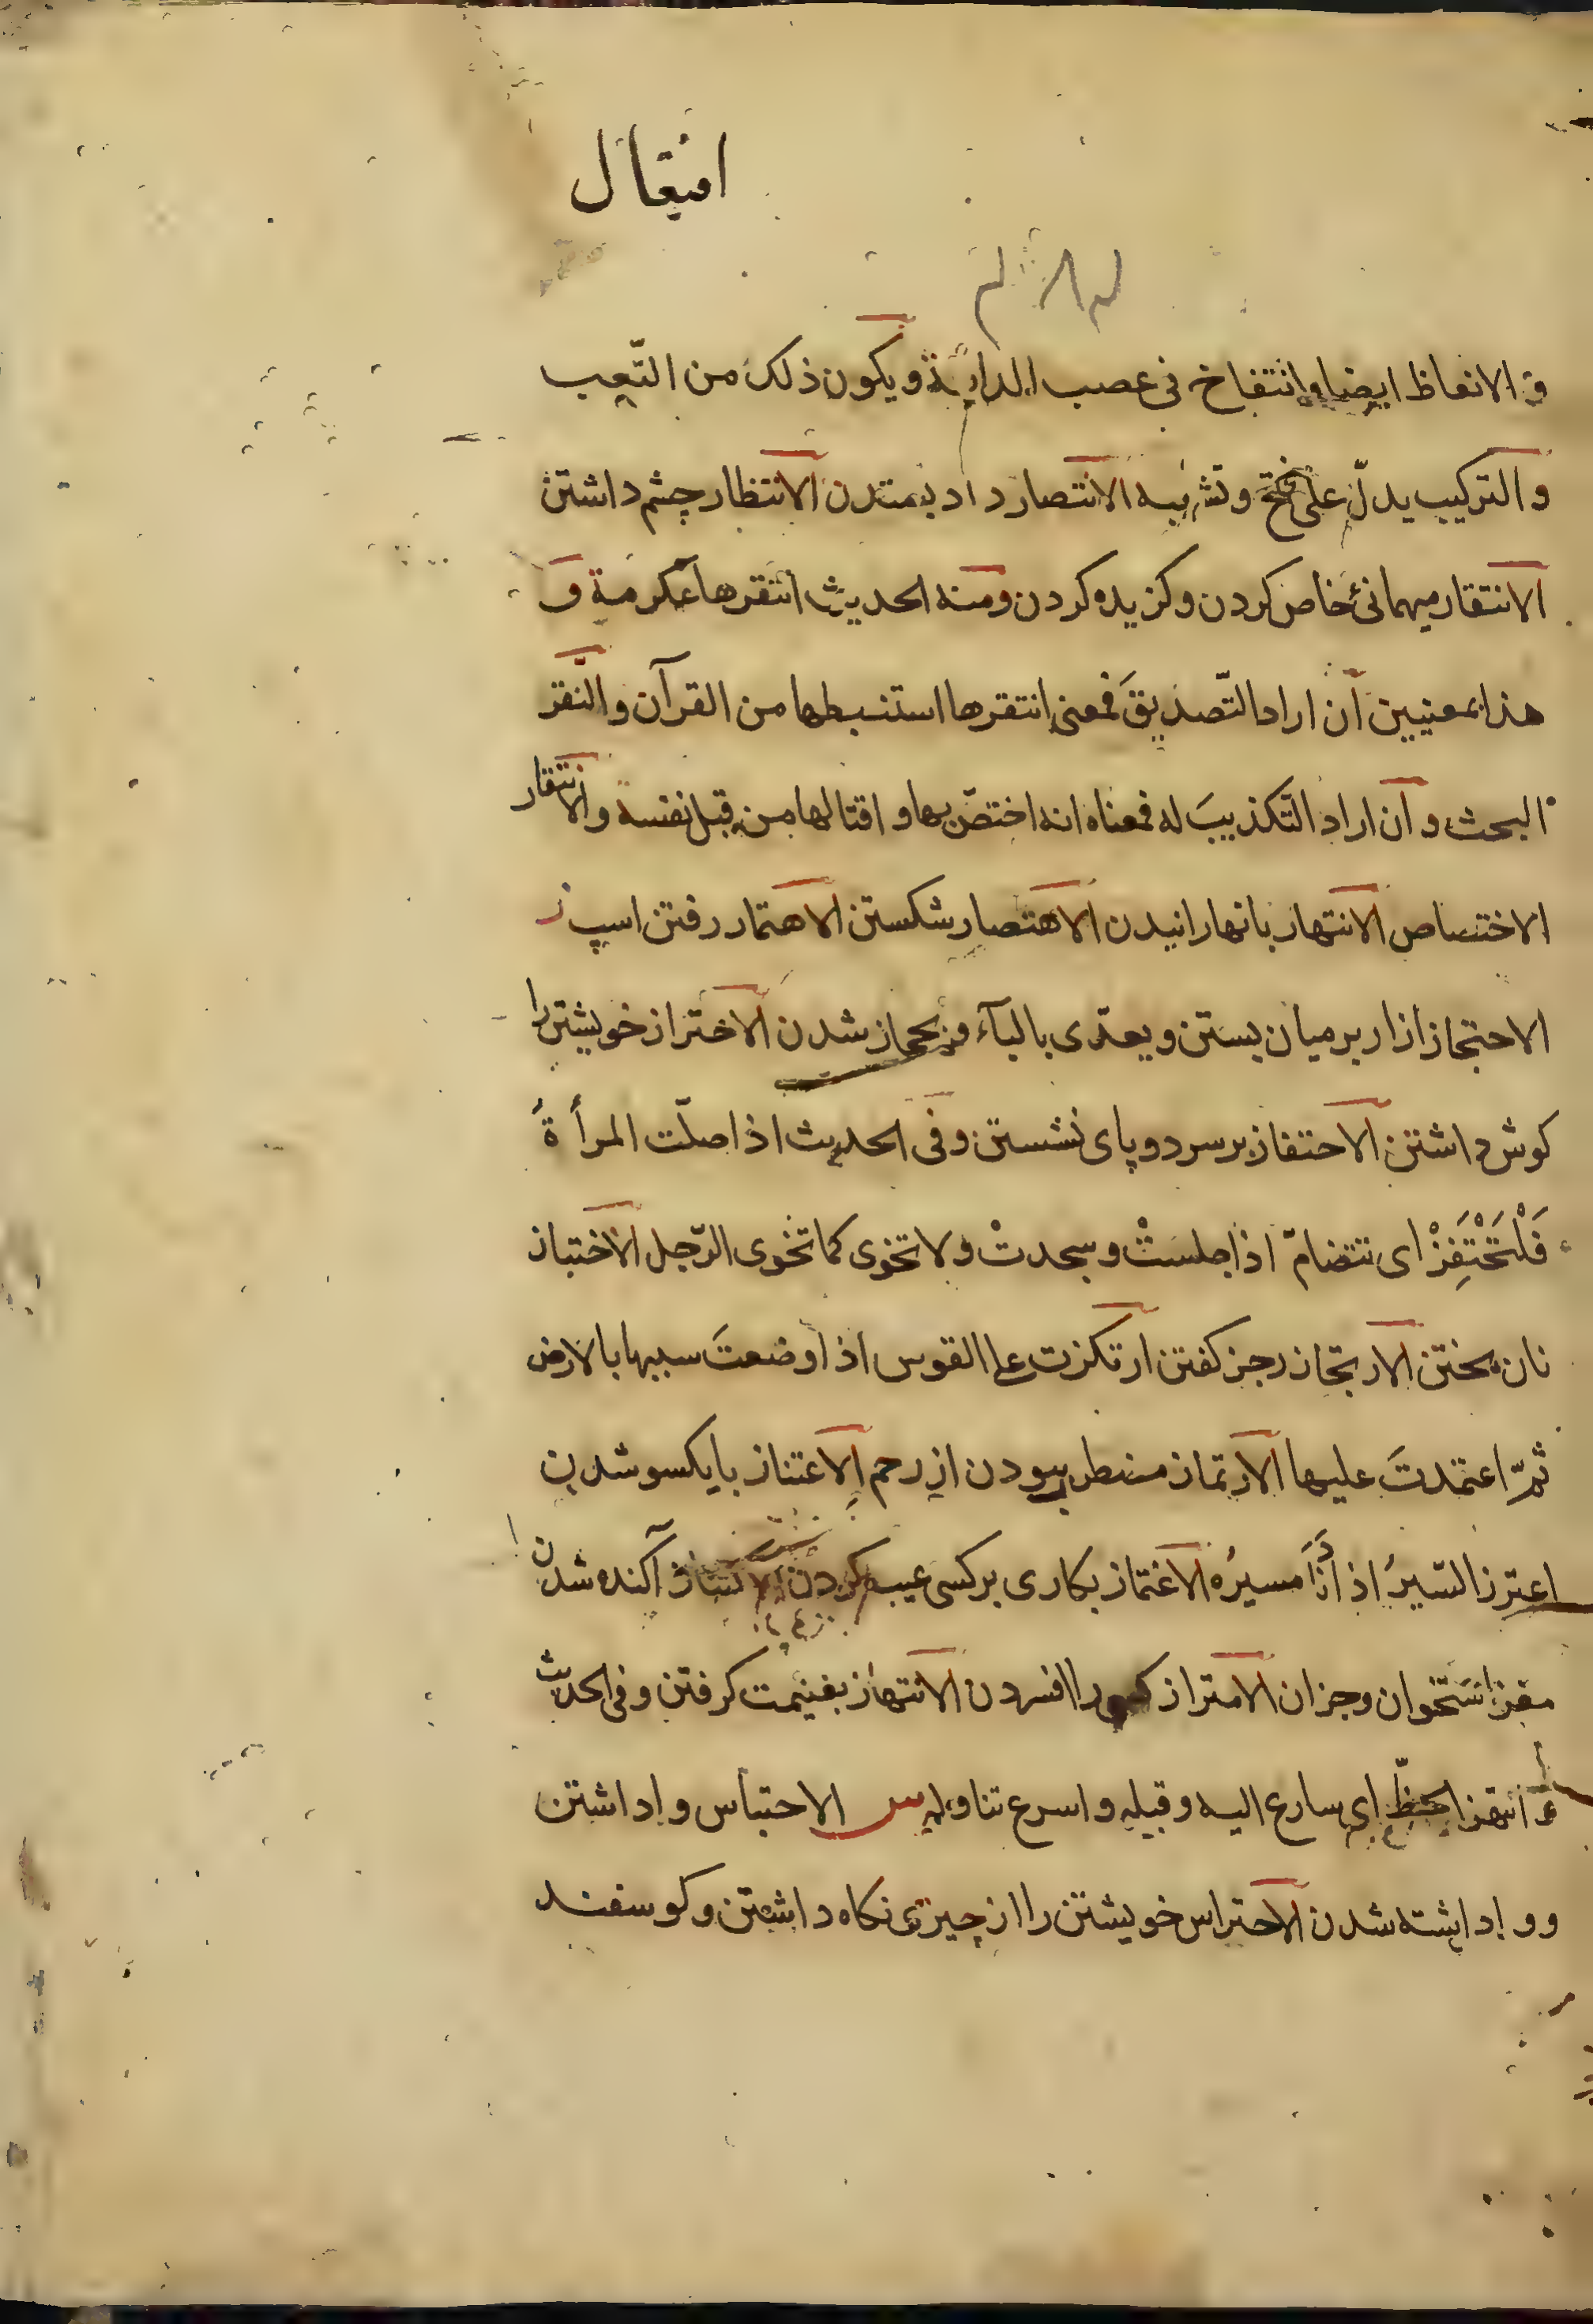 افتعال
و الانعاظ ايضا وانتفاخ فى عصب الدابة ويكون ذلك من التّعب
والتركيب يدلّ على فتح وتشربه الانتصار داد بستدن الانتظار چشم داشتن
الانتقار ميهمانئ خاص كردن وكزيده كردن ومنه الحديث انتقرها عكرمة و
هذا بمعنيين ان اراد التّصديقَ فمعنى انتقرها استنبطها من القرآن والنقر
البحث و ان اراد التّكذيبَ له فمعناه انه اختصّ بها و اقتالها من قبل نفسه والانتقار
الاختصاص الانتهار بانها رانيدن الاهتصار شكستن الاهتمار رفتن اسپ ز
الاحتجاز ازار بر ميان بستن ويعدّى بالبآء و بحجاز شدن الاحتراز خويشتن را
كوش داشتن الاحتفاز بر سر دو پاى نشستن وفى الحديث اذا صلّت المرأةُ
فَلْتَحْتَفِزْ اى تتضامّ اذا جلست وسجدتْ ولا تخوى كما تخوى الرّجل الاختباز
نان پختن الارتجاز رجز كفتن ارتكزت على القوس اذا وضعتَ سيبها بالارض
ثمّ اعتمدتَ عليها الارتماز مضطرب بودن از زخم الاعتناز بايكسو شدن
اعترز السّيرُ اذا دنا مسيرُه الاغتماز بكارى بر كسى عيب كردن الاكتناز آكنده شدن
مغز استخوان وجز ان الامتراز كسى را افسردن الانتهاز بغنيمت كرفتن وفى الحديث
و انتهز الحظّ اى سارع اليه وقبله واسرع تناوله س الاحتباس واداشتن
و واداشته شدن الاحتراس خويشتن را از چيزى نكاه داشتن وكوسفند